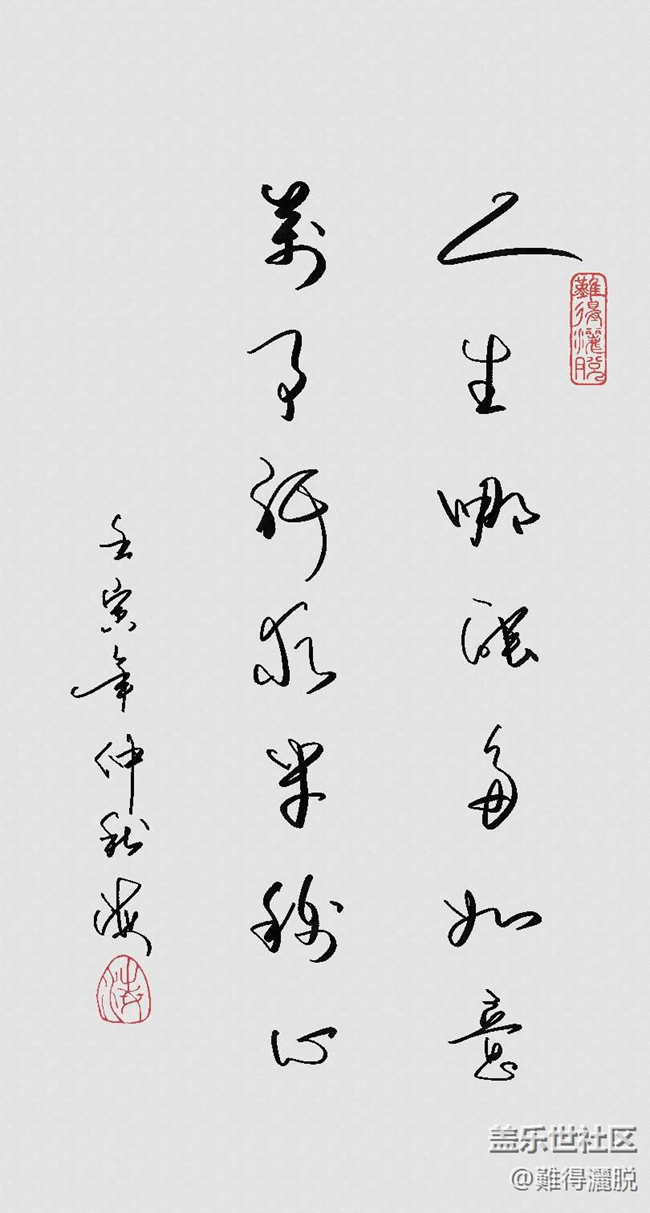 難得灑脱
人生哪能多如意
萬事祇求半稱心
壬寅年仲秋
盖乐世社区
@難得灑脱